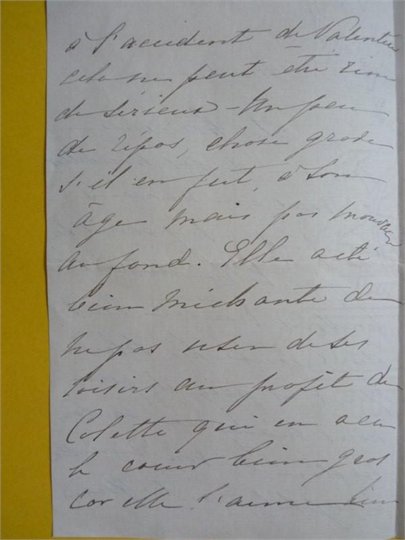 à l'accident de Valentine
cela ne peut être rien
de sérieux - Un peu
de repos, chose grave
s'il en fut, à son
âge mais pas mauvaise
au fond. Elle a été
bien méchante de
ne pas user de ses
loisirs au profit de
Colette qui en a eu
le cœur bien gros
car elle l'aime bien